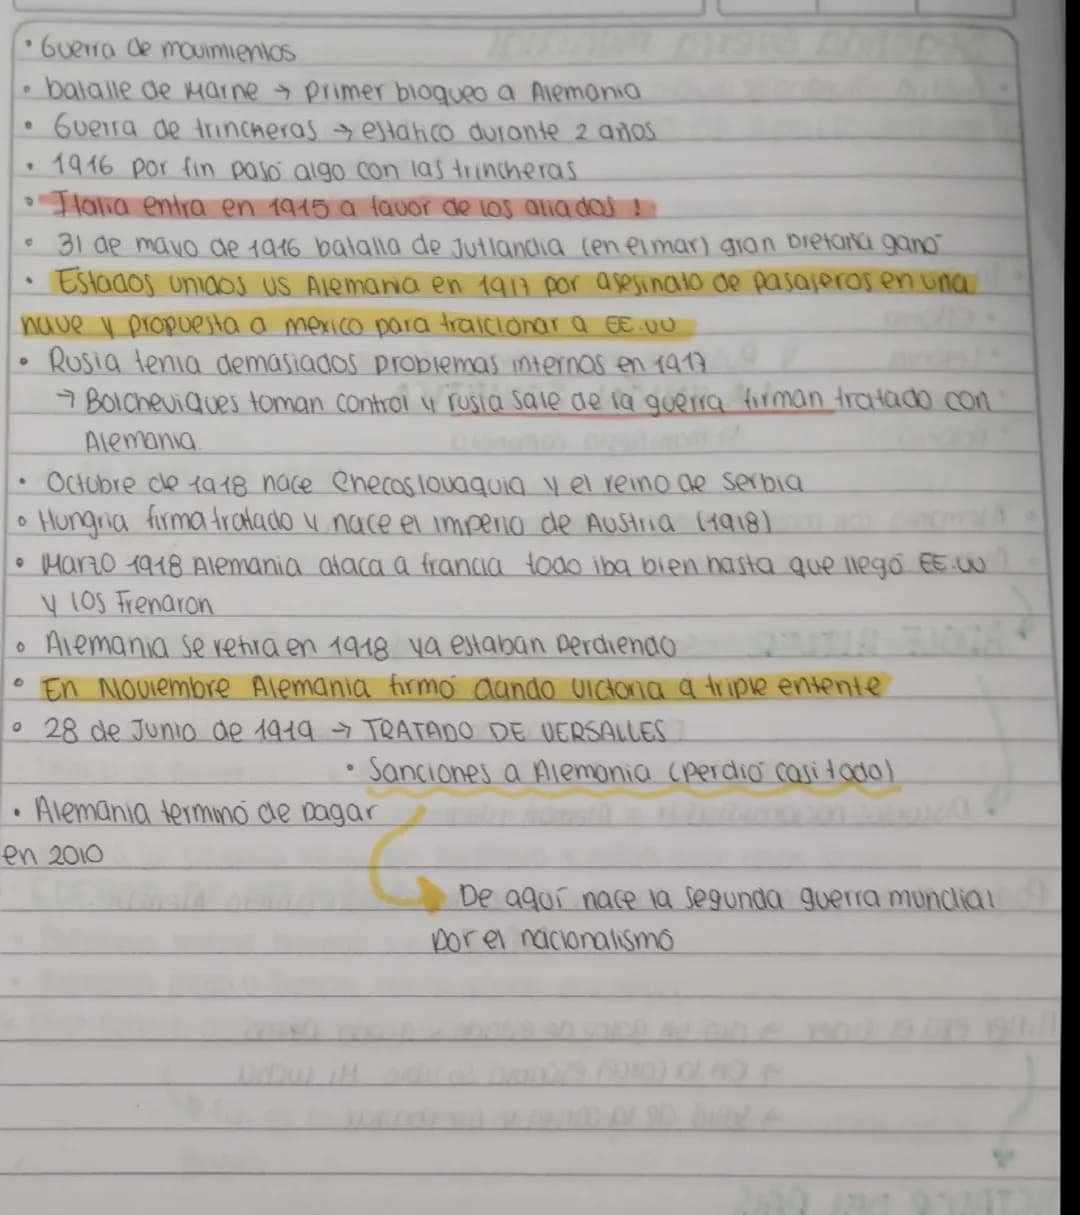 • Guerra de movimientos
• batalle de Marne → primer bloqueo a Alemania
• Guerra de trincheras → estatico durante 2 años
• 1916 por fin pasó algo con las trincheras
• Italia entra en 1915 a favor de los aliados !
• 31 de mayo de 1916 batalla de Jutlandia (en el mar) gran bretaña ganó
• Estados unidos vs Alemania en 1917 por asesinato de pasajeros en una
nave y propuesta a mexico para traicionar a EE.UU
• Rusia tenia demasiados problemas internos en 1917
→ Bolcheviques toman control y rusia sale de la guerra firman tratado con
Alemania.
• Octubre de 1918 nace Checoslovaquia y el reino de Serbia
• Hungria firma tratado y nace el imperio de Austria (1918)
• Marzo 1918 Alemania ataca a francia todo iba bien hasta que llegó EE.UU
y los Frenaron
• Alemania se retira en 1918 ya estaban perdiendo
• En Noviembre Alemania firmó dando victoria a triple entente
• 28 de Junio de 1919 → TRATADO DE VERSALLES
• Sanciones a Alemania (perdió casi todo)
• Alemania terminó de pagar
en 2010
De aquí nace la segunda guerra mundial
por el nacionalismo